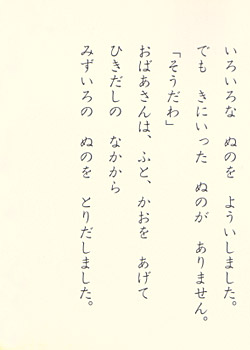 いろいろな　ぬのを　よういしました。
でも　きにいった　ぬのが　ありません。
「そうだわ」
おばあさんは、ふと、かおを　あげて
ひきだしの　なかから
みずいろの　ぬのを　とりだしました。